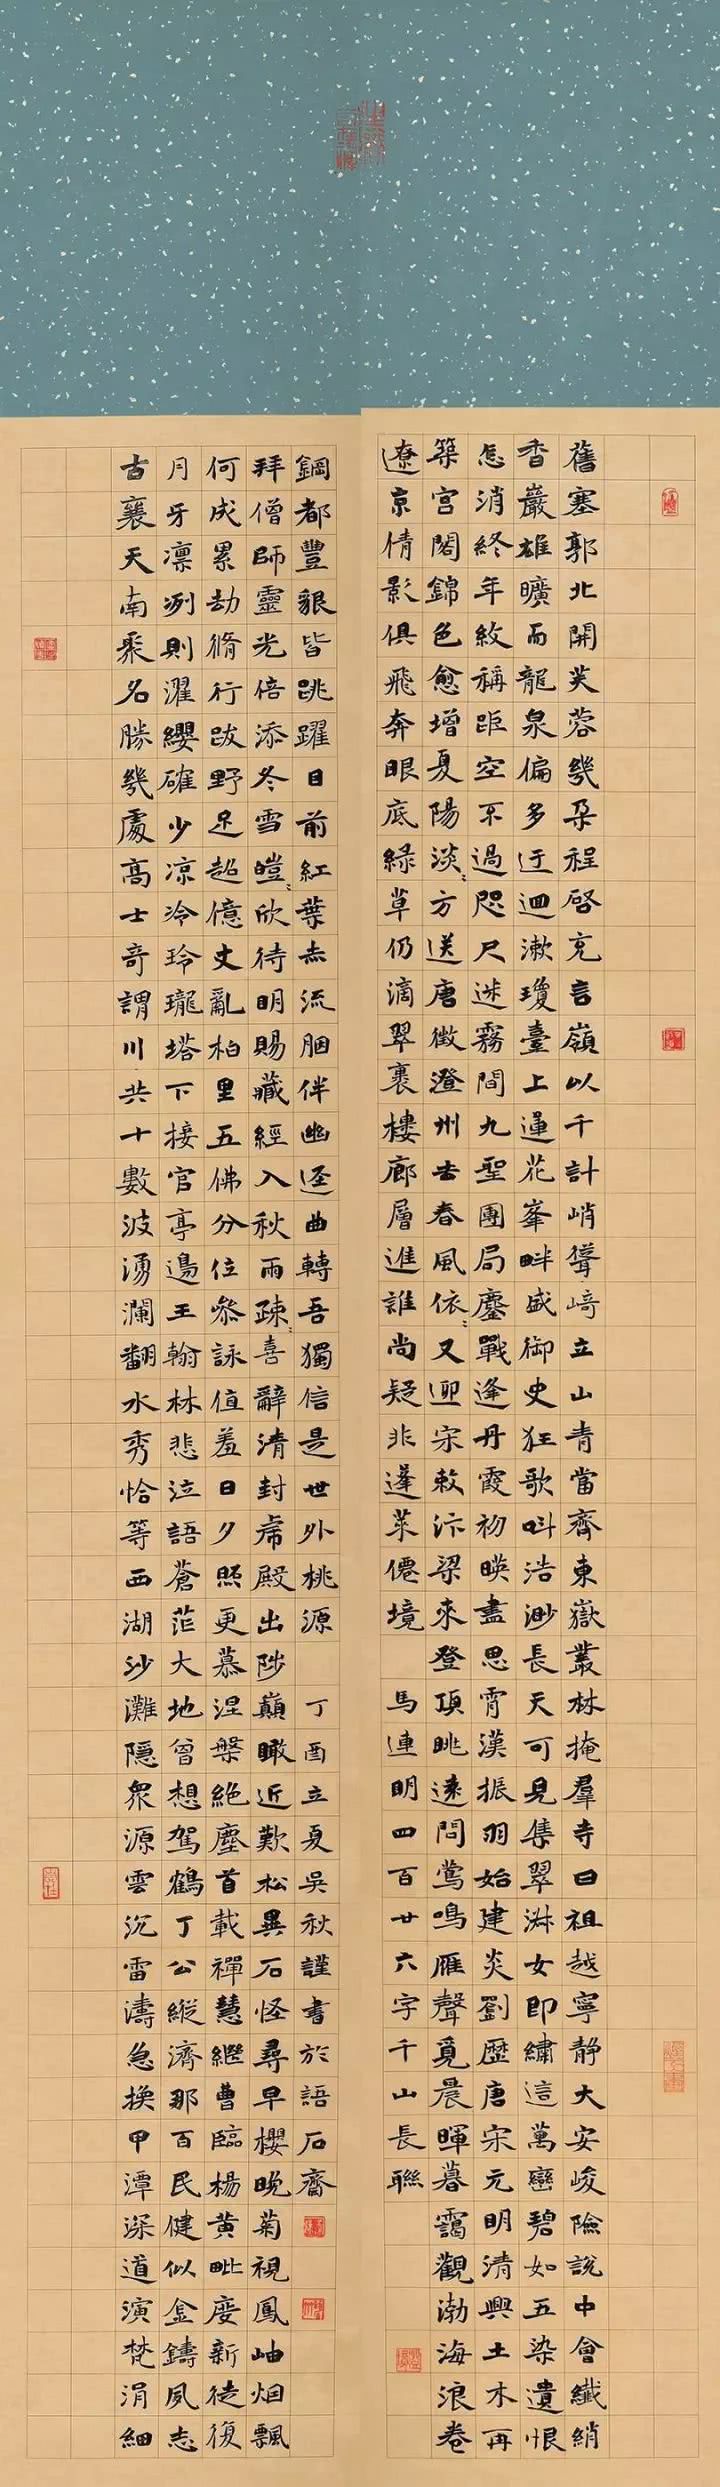 舊塞郭北開芙蓉幾朶程啓充言嶺以千計峭聳崎立山青當齊東嶽叢林掩羣寺曰祖越寧靜大安峻險說中會纖綃
香巖雄曠而龍泉偏多迂迴漱瓊臺上蓮花峯畔盛御史狂歌叫浩渺長天可見集翠女即繡這萬巒碧如五染遺恨
怎消終年紋稱距空不過咫尺迷霧間九聖團局鏖戰逢丹霞初暎盡思霄漢振羽始建炎劉歷唐宋元明清興土木再
築宮闕錦色愈增夏陽淡〻方送唐徵澄州去春風依〻又迎宋敕汴梁來登頂眺遠問鶯鳴雁聲覓晨暉暮靄觀渤海浪卷
遼京倩影俱飛奔眼底綠草仍滴翠裏樓廊層進誰尚疑非蓬萊僊境 馬連明四百廿六字千山長聯
鋼都豐貌皆跳躍目前紅葉赤流胭伴幽逕曲轉吾獨信是世外桃源 丁酉立夏吳秋謹書於語石齋
拜僧師靈光倍添冬雪暟〻欣待明賜藏經入秋雨疎〻喜辭清封虎殿出陟巔瞰近歎松異石怪尋早櫻晚菊視鳳岫烟飄
何成累劫脩行跋野足超億丈亂柏里五佛分位叅詠值羞日夕照更慕涅槃絕塵首載禪慧繼曹臨楊黃毗度新徒復
月牙凛冽則濯纓確少凉泠玲瓏塔下接官亭邊王翰林悲泣語蒼茫大地曾想駕鶴丁公縱濟那百民健似金鑄夙志
古襄天南聚名勝幾處高士奇謂川共十數波湧瀾翻水秀恰等西湖沙灘隱衆源雲沉雷濤急換甲潭深道演梵涓細